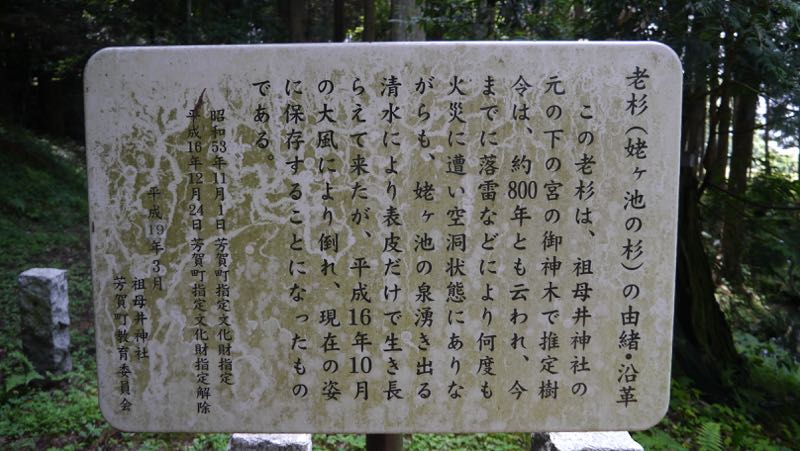 老杉(姥ヶ池の杉)の由緒・沿革
この老杉は、祖母井神社の
元の下の宮の御神木で推定樹
令は、約800年とも云われ、今
までに落雷などにより何度も
火災に遭い空洞状態にありな
がらも、姥ヶ池の泉湧き出る
清水により表皮だけで生き長
らえて来たが、平成16年10月
の大風により倒れ、現在の姿
に保存することになったもの
である。
昭和53年11月1日 芳賀町指定文化財指定
平成16年12月24日 芳賀町指定文化財指定解除
平成19年3月
祖母井神社
芳賀町教育委員会